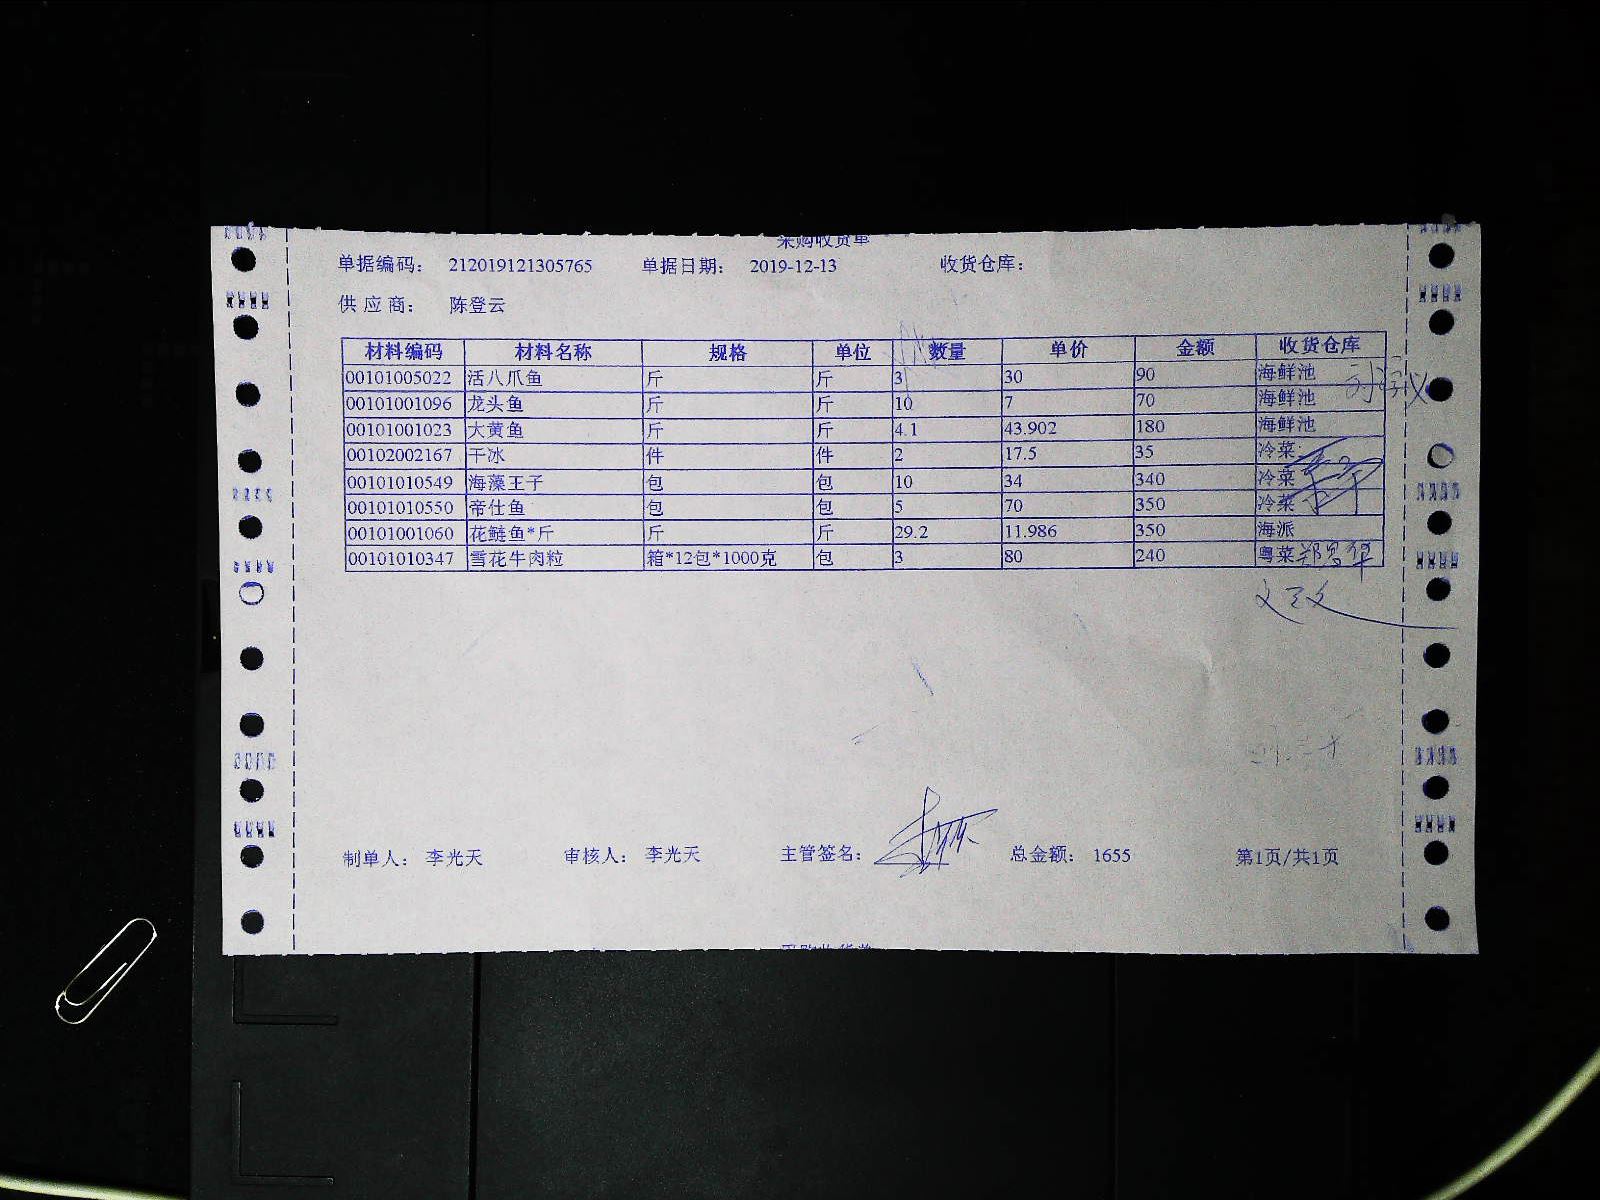 采购收货单
单据编码： 212019121305765 单据日期： 2019-12-13 收货仓库：
供应商： 陈登云
材料编码 材料名称 规格 单位 数量 单价 金额 收货仓库
00101005022 活八爪鱼 斤 斤 3 30 90 海鲜池
00101001096 龙头鱼 斤 斤 10 7 70 海鲜池
00101001023 大黄鱼 斤 斤 4.1 43.902 180 海鲜池
00102002167 干冰 件 件 2 17.5 35 冷菜
00101010549 海藻王子 包 包 10 34 340 冷菜
00101010550 帝仕鱼 包 包 5 70 350 冷菜
00101001060 花鲢鱼*斤 斤 斤 29.2 11.986 350 海派
00101010347 雪花牛肉粒 箱*12包*1000克 包 3 80 240 粤菜
制单人： 李光天 审核人： 李光天 主管签名： 总金额： 1655 第1页/共1页